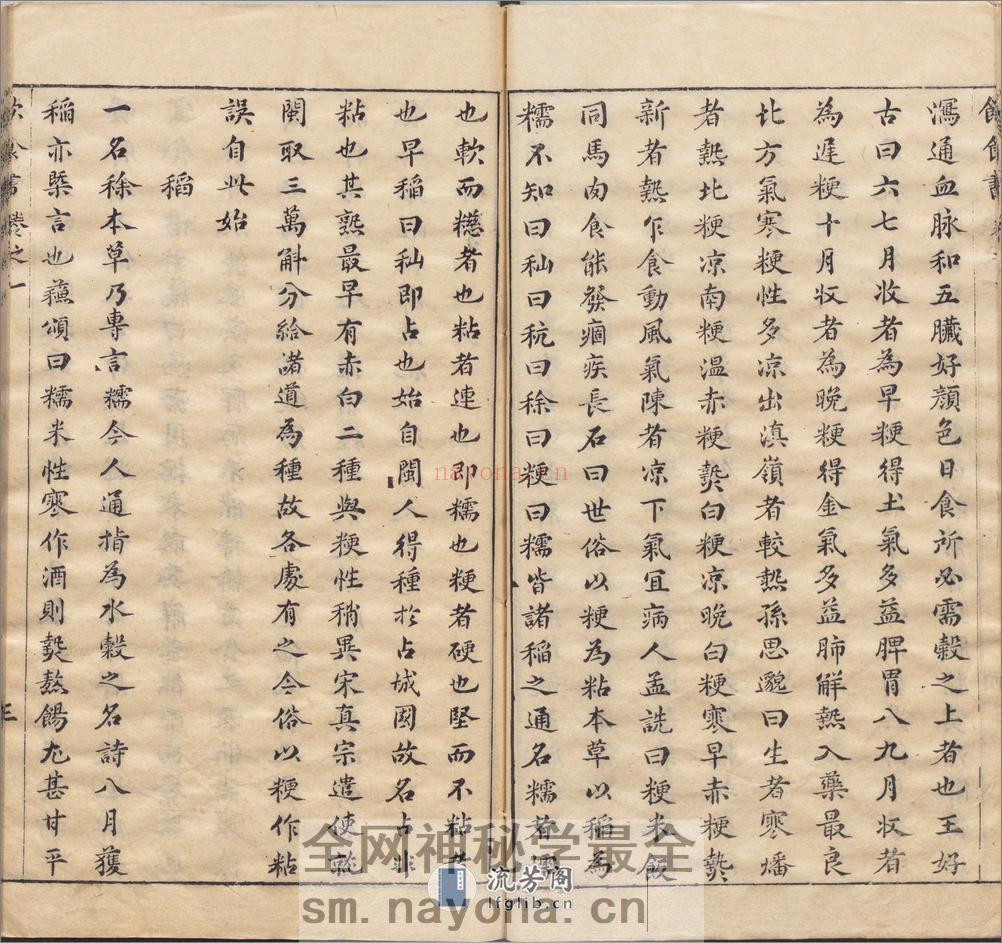 瀉通血脉和五臟好顔色日食所必需穀之上者也王好
古曰六七月收者為早粳得土氣多益脾胃八九月收者
為遲粳十月收者為晩粳得金氣多益肺解熱入藥最良
北方氣寒粳性多凉出滇嶺者較熱孫思邈曰生者寒燔
者熱北粳凉南粳温赤粳熱白粳凉晩白粳寒早赤粳熱
新者熱乍食動風氣陳者凉下氣宜病人孟詵曰粳米飯
同馬肉食能發痼疾長石曰世俗以粳為粘本草以稲為
糯不知曰秈曰秔曰稌曰粳曰糯皆諸稲之通名糯者濡
也軟而
者也粘者連也即糯也粳者硬也堅而不粘者
也早稲曰秈即占也始自閩人得種於占城國故名占非
粘也其熟最早有赤白二種與粳性稍異宋真宗遣使就
閩取三萬斛分給諸道為種故各處有之今俗以粳作粘
誤自此始
稻
一名稌本草乃專言糯今人通指為水穀之名詩八月獲
稲亦槩言也蘓頌曰糯米性寒作酒則熱熬餳尤甚甘平
卷之一
三
nayona.cn
全网神秘学最全
流芳阁
lfglib.cn
sm.nayona.cn